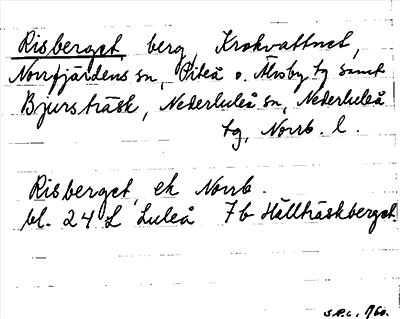 Risberget, berg, Krokvattnet,
Norrfjärdens sn, Piteå o. Älvsby tg samt
Bjursträsk, Nederluleå sn, Nederluleå
tg, Norrb. l.
Risberget, ek Norrb.
bl. 24 L Luleå 7b Hällträskberget.